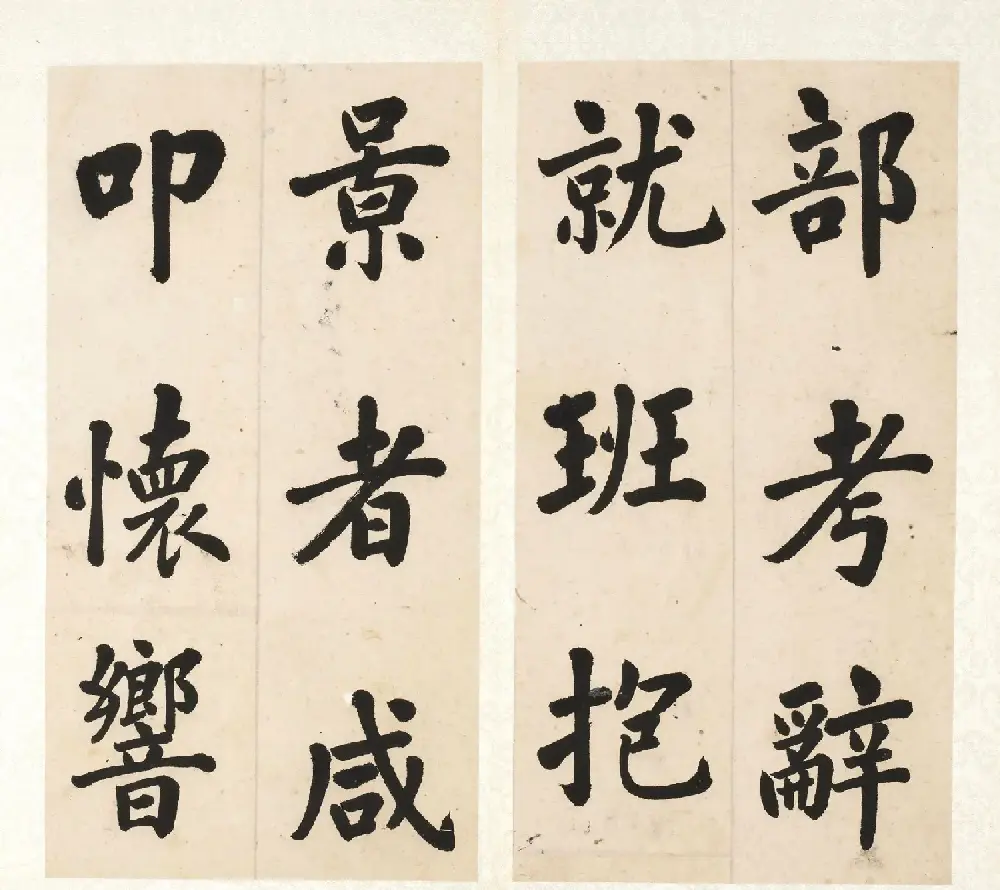 部考辭
就班抱
景者咸
叩懷響